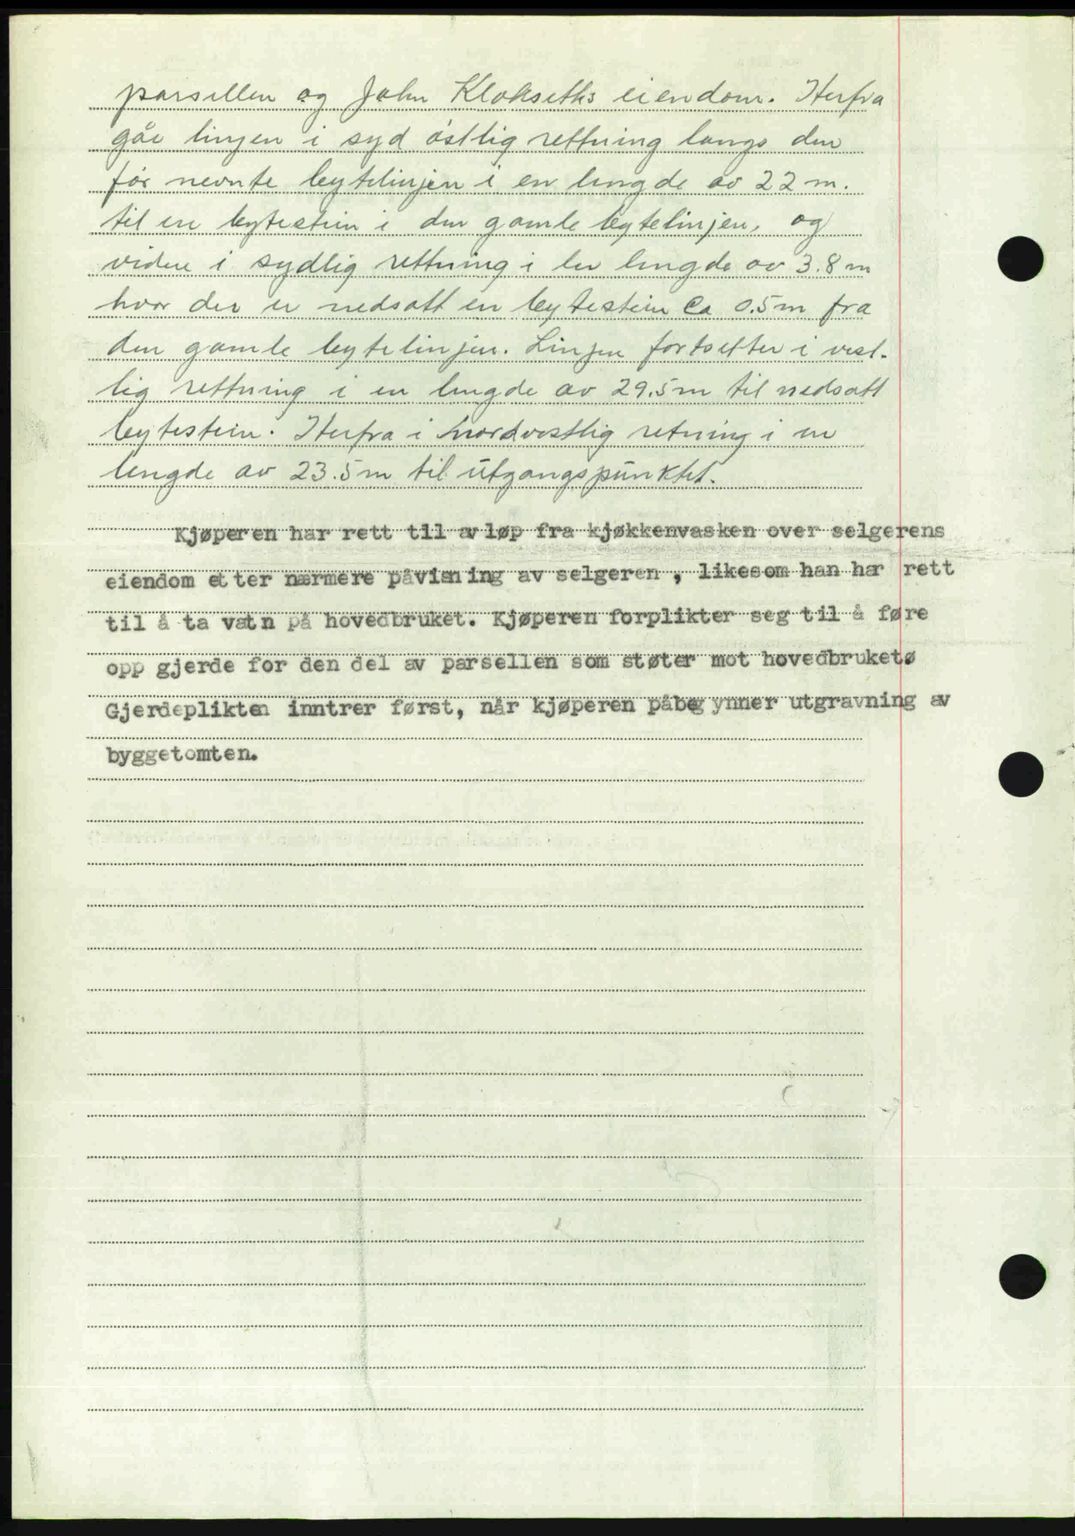 parsellen og John Klokseths eiendom. Herfra
går linjen i syd østlig rettning langs den
før nevnte bytelinjen i en lengde av 22 m.
til en bytestein i den gamle bytelinjen, og
videre i sydlig rettning i en lengde av 3.8 m
hvor der er nedsatt en bytestein ca 0.5 m fra
den gamle bytelinjen. Linjen fortsetter i vest-
lig rettning i en lengde av 29.5 m til nedsatt
bytestein. Herfra i nordvestlig retning i en
lengde av 23.5 m til utgangspunktet.
Kjøperen har rett til avløp fra kjøkkenvasken over selgerens
eiendom etter nærmere påvisning av selgeren, likesom han har rett
til å ta vatn på hovedbruket. Kjøperen forplikter seg til å føre
opp gjerde for den del av parsellen som støter mot hovedbruketø
Gjerdeplikten inntrer først, når kjøperen påbegynner utgravning av
byggetomten.